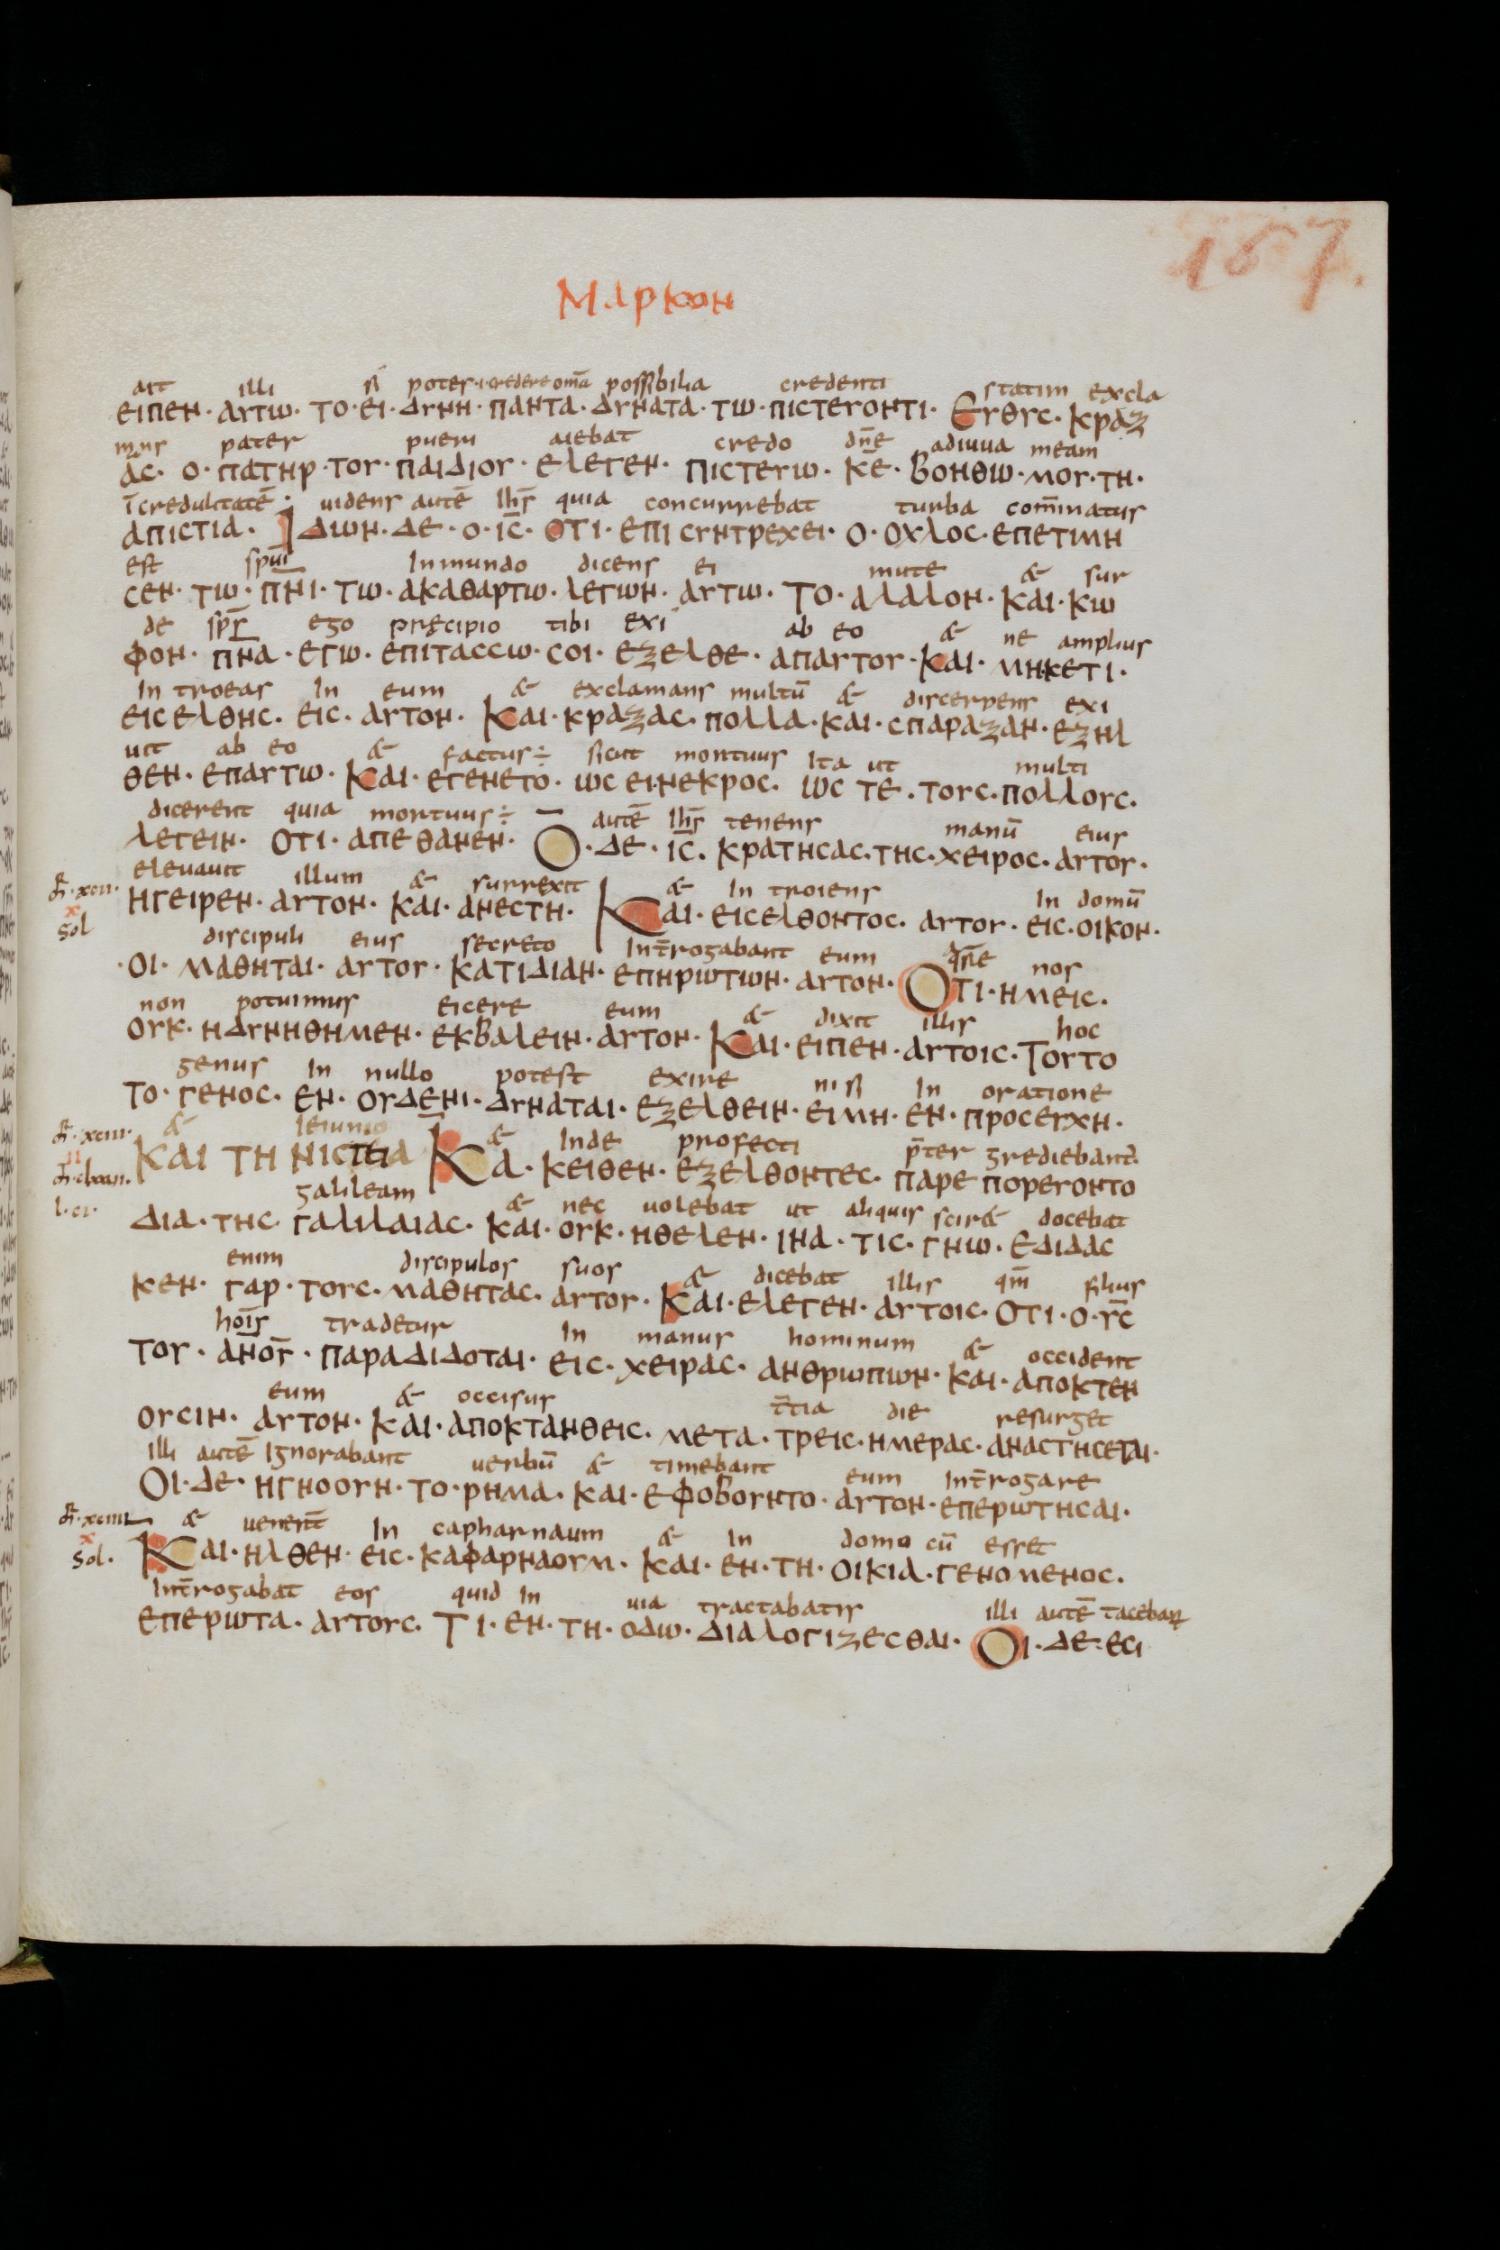 167.
ΜΑΡΚΟΝ
ait illi si potes .i. credere om̄a possibilia credenti statim excla
ΕΙΠΕΝ· ΑΥΤΩ· ΤΟ· ΕΙ· ΔΥΝΗ· ΠΑΝΤΑ· ΔΥΝΑΤΑ· ΤΩ· ΠΙCΤΕΥΟΝΤΙ· ΕΥΘΥC· ΚΡΑΖ
mans pater pueri aiebat credo dn̄e adiuua meam
ΑC· Ο· ΠΑΤΗΡ· ΤΟΥ· ΠΑΙΔΙΟΥ· ΕΛΕΓΕΝ· ΠΙCΤΕΥΩ· Κ̄Ε̄· ΒΟΗΘΩ· ΜΟΥ· ΤΗ·
īcredulitatē uidens autē ih̄s quia concurrebat turba com̄inatus
ΑΠΙCΤΙΑ· ΙΔΩΝ· ΔΕ· Ο· Ι̅C̅· ΟΤΙ· ΕΠΙ CΥΝΤΡΕΧΕΙ· Ο· ΟΧΛΟC· ΕΠΕΤΙΜΗ
est sp̄ui Inmundo dicens ei mute & sur
CΕΝ· ΤΩ· Π̅Ν̅Ι· ΤΩ· ΑΚΑΘΑΡΤΩ· ΛΕΓΩΝ· ΑΥΤΩ· ΤΟ· ΑΛΑΛΟΝ· ΚΑΙ· ΚΩ
de sp̄s ego pręcipio tibi exi ab eo & ne amplius
ΦΟΝ· Π̅Ν̅Α· ΕΓΩ· ΕΠΙΤΑCCΩ· CΟΙ· ΕΞΕΛΘΕ· ΑΠΑΥΤΟΥ· ΚΑΙ· ΜΗΚΕΤΙ·
In troeas In eum & exclamans multū & discerpens exi
ΕΙCΕΛΘΗC· ΕΙC· ΑΥΤΟΝ· ΚΑΙ· ΚΡΑΖΑC· ΠΟΛΛΑ· ΚΑΙ· CΠΑΡΑΖΑΝ· ΕΞΗΛ
uit ab eo & factus÷ sicut mortuus Ita ut multi
ΘΕΝ· ΕΠΑΥΤΩ· ΚΑΙ· ΕΓΕΝΕΤΟ· ΩC ΕΙ·ΝΕΚΡΟC· ΩC ΤΕ· ΤΟΥC· ΠΟΛΛΟΥC·
dicerent quia mortuus÷ autē ih̄s tenens manū eius
ΛΕΓΕΙΝ· ΟΤΙ· ΑΠΕΘΑΝΕΝ· Ο· ΔΕ· Ι̅C̅· ΚΡΑΤΗCΑC· ΤΗC· ΧΕΙΡΟC· ΑΥΤΟΥ·
eleuauit illum & surrexit & In troiens In domū
ΗΓΕΙΡΕΝ· ΑΥΤΟΝ· ΚΑΙ· ΑΝΕCΤΗ· ΚΑΙ· ΕΙCΕΛΘΟΝΤΟC· ΑΥΤΟΥ· ΕΙC· ΟΙΚΟΝ·
x
sol
discipuli eius secreto Int̄rogabant eum nos
·ΟΙ· ΜΑΘΗΤΑΙ· ΑΥΤΟΥ· ΚΑΤΙΔΙΑΝ· ΕΠΗΡΩΤΩΝ· ΑΥΤΟΝ· ΟΤΙ· ΗΜΕΙC·
non potuimus eicere eum & dixit illis hoc
ΟΥΚ· ΗΔΥΝΗΘΗΜΕΝ· ΕΚΒΑΛΕΙΝ· ΑΥΤΟΝ· ΚΑΙ· ΕΙΠΕΝ· ΑΥΤΟΙC· ΤΟΥΤΟ
genus In nullo potest exire nisi In oratione
ΤΟ· ΓΕΝΟC· ΕΝ· ΟΥΔΕΝΙ· ΔΥΝΑΤΑΙ· ΕΞΕΛΘΕΙΝ· ΕΙΜΗ· ΕΝ· ΠΡΟCΕΥΧΗ·
& ieiunio & Inde profecti p̄ter grediebant̄
ΚΑΙ ΤΗ ΝΙCΤΕΙΑ ΚΑ· ΚΕΙΘΕΝ· ΕΞΕΛΘΟΝΤΕC· ΠΑΡΕ ΠΟΡΕΥΟΝΤΟ
galileam & nec uolebat ut aliquis scir& docebat
ΔΙΑ· ΤΗC· ΓΑΛΙΛΑΙΑC· ΚΑΙ· ΟΥΚ· ΗΘΕΛΕΝ· ΙΝΑ· ΤΙC· ΓΝΩ· ΕΔΙΔΑC
enim discipulos suos & dicebat illis qm̄ filius
ΚΕΝ· ΓΑΡ· ΤΟΥC· ΜΑΘΗΤΑC· ΑΥΤΟΥ· ΚΑΙ· ΕΛΕΓΕΝ· ΑΥΤΟΙC· ΟΤΙ· Ο· Υ̅C̅
hōis tradetur In manus hominum & occident
ΤΟΥ· ΑΝ̅Ο̅Υ̅· ΠΑΡΑΔΙΔΟΤΑΙ· ΕΙC· ΧΕΙΡΑC· ΑΝΘΡΩΠΩΝ· ΚΑΙ· ΑΠΟΚΤΕΝ
eum & occisus t̄tia die resurget
ΟΥCΙΝ· ΑΥΤΟΝ· ΚΑΙ· ΑΠΟΚΤΑΝΘΕΙC· ΜΕΤΑ· ΤΡΕΙC· ΗΜΕΡΑC· ΑΝΑCΤΗCΕΤΑΙ·
illi autē Ignorabant uerbū & timebant eum Int̄rogare
ΟΙ· ΔΕ· ΗΓΝΟΟΥΝ· ΤΟ· ΡΗΜΑ· ΚΑΙ· ΕΦΟΒΟΥΝΤΟ· ΑΥΤΟΝ· ΕΠΕΡΩΤΗCΑΙ·
& uener̄t In capharnaum & In domo cū esset
ΚΑΙ· ΗΛΘΕΝ· ΕΙC· ΚΑΦΑΡΝΑΟΥΜ· ΚΑΙ· ΕΝ· ΤΗ· ΟΙΚΙΑ· ΓΕΝΟΜΕΝΟC·
x
sol·
Int̄rogabat eos quid In uia tractabatis illi autē tacebant
ΕΠΕΡΩΤΑ· ΑΥΤΟΥC· ΤΙ· ΕΝ· ΤΗ· ΟΔΩ· ΔΙΑΛΟΓΙΖΕCΘΑΙ· ΟΙ· ΔΕ· ΕCΙ